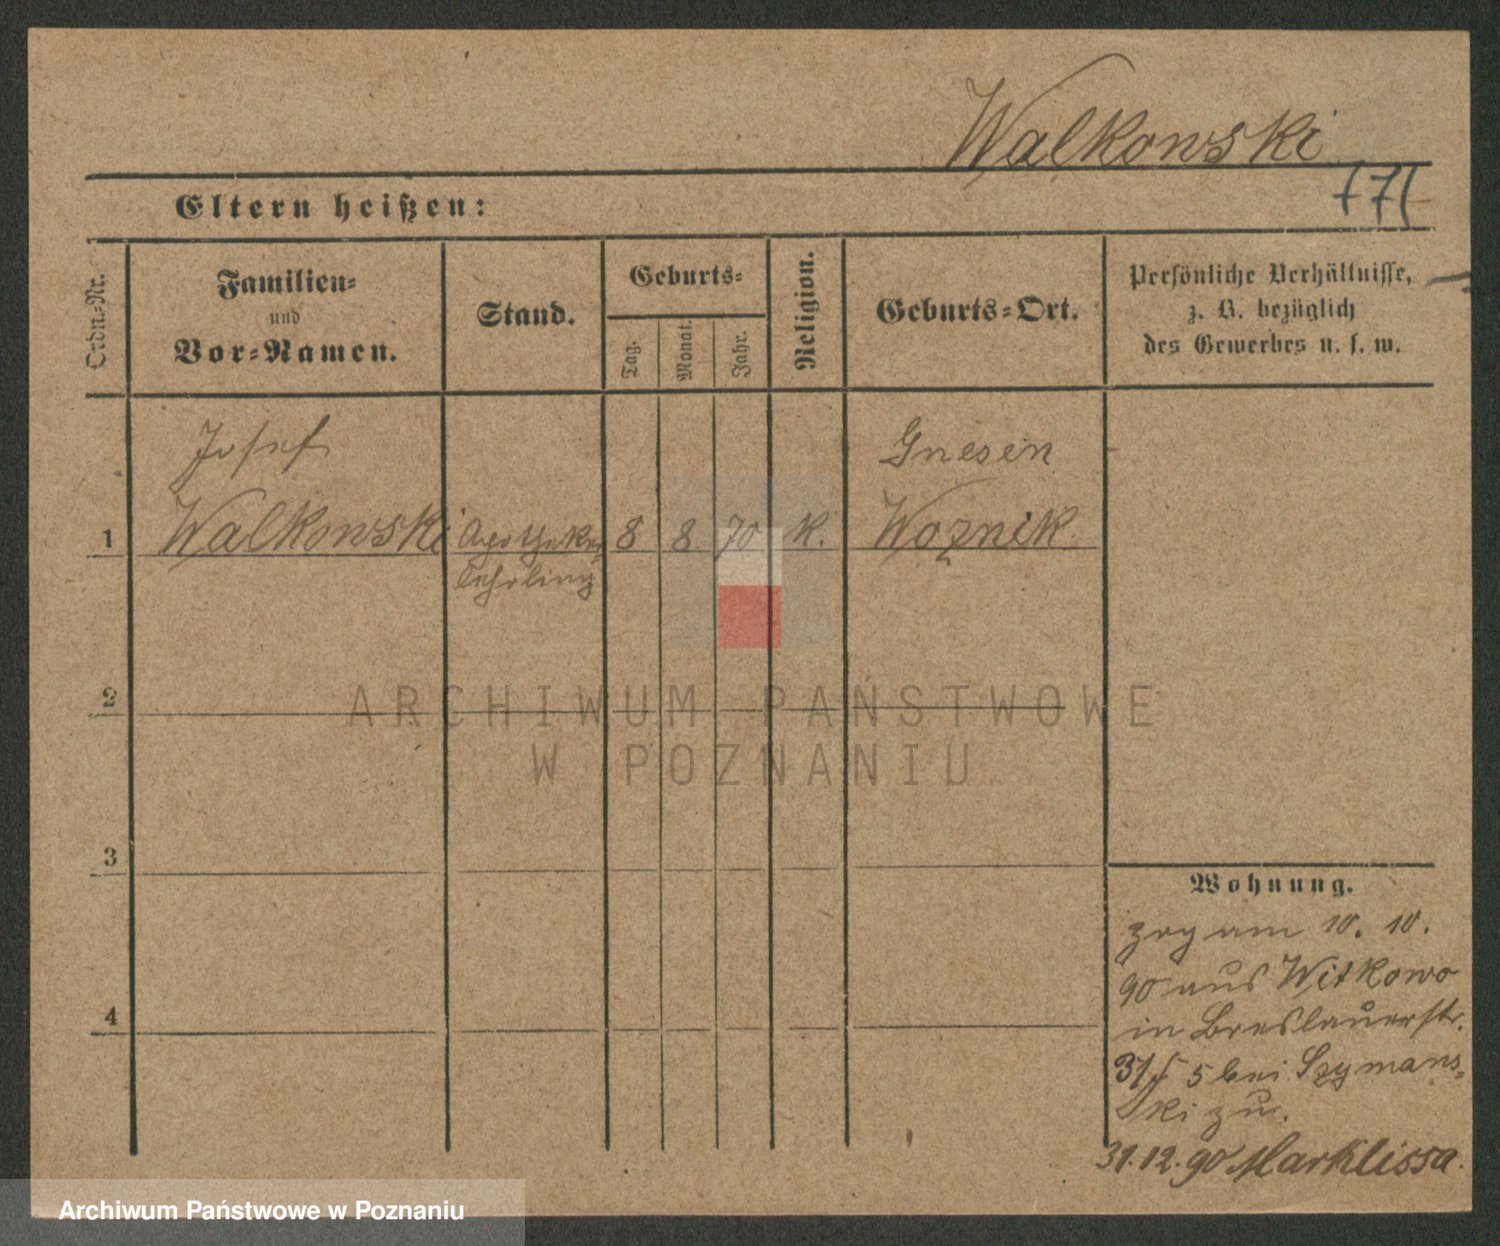 Walkowski
Eltern heißen:
Ordn.-Nr.
Familien-
und
Vor-Namen.
Stand.
Geburts-
Tag.
Monat.
Jahr.
Religion.
Geburts-Ort.
Persönliche Verhältnisse,
z. B. bezüglich
des Gewerbes u. s. w.
Josef
Gnesen
1 Walkowski Apotheker 8 8. 70 k. Woznik
Lehrling
2
ARCHIWUM PAŃSTWOWE
W POZNANIU
3
Wohnung.
zog am 10. 10.
90 aus Witkowo
in Breslauerstr.
5 bei Szymans-
ki zu.
4
31.12.90 Marklissa.
Archiwum Państwowe w Poznaniu